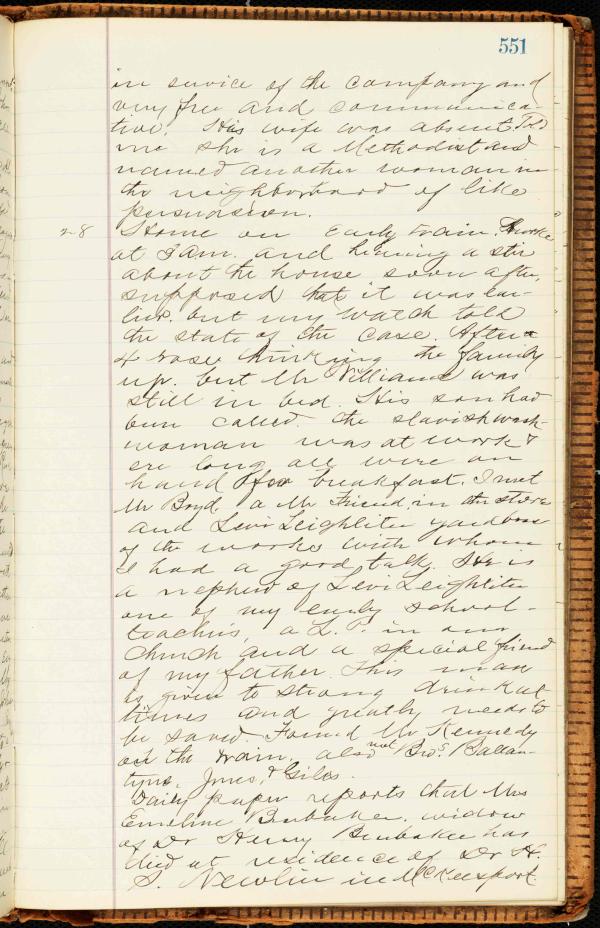 551
in service of the company and
very free and communica-
tive. His wife was absent. Told
me she is a Methodist and
named another woman in
the neighborhood of like
persuasion.
28 Home on early train. Awoke
at 3 am. and hearing a stir
about the house soon after,
supposed that it was ear-
lier. but my watch told
the state of the case. After
4 rose thinking the family
up. but Mr Williams was
still in bed. His son had
been called. The slavish wash-
woman was at work &
ere long all were on
hand for breakfast. I met
Mr Boyd a Mr Friend, in the store
and Levi Leighliter yard boss
of the works with whom
I had a good talk. He is
a nephew of Levi Leighliter
one of my early school-
teachers, a L. P. in our
church and a special friend
of my father. This man
is given to strong drink at
times and greatly needs to
be saved. Found Mr. Kennedy
on the train. also met Bros. Ballan-
tyne, Jones, & Giles.
Daily paper reports that Mrs
Emeline Brubaker, widow
of Dr Henry Brubaker has
died at residence of Dr H.
S. Newlin in McKeesport.